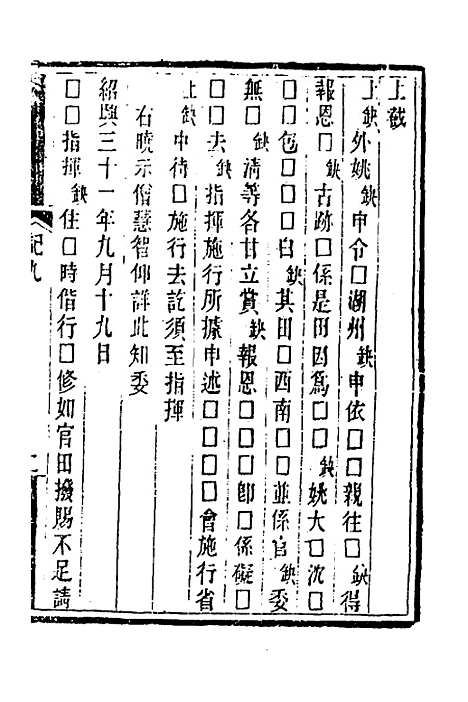 上截
上缺外姚缺申令□湖州缺申依□□親往□缺得
報恩□缺古跡□係是田因爲□□缺姚大□沈□
□□包□□□白缺其田□西南□□並係官缺委
無□缺清等各甘立賞缺報恩□□□郎□係礙□
□□去缺指揮施行所據申述□□□□會施行省
上缺申待□施行去訖須至指揮
右曉示僧慧智仰詳此知委
紹興三十一年九月十九日
□□指揮缺住□時偕行□修如官田撥賜不足請
記九